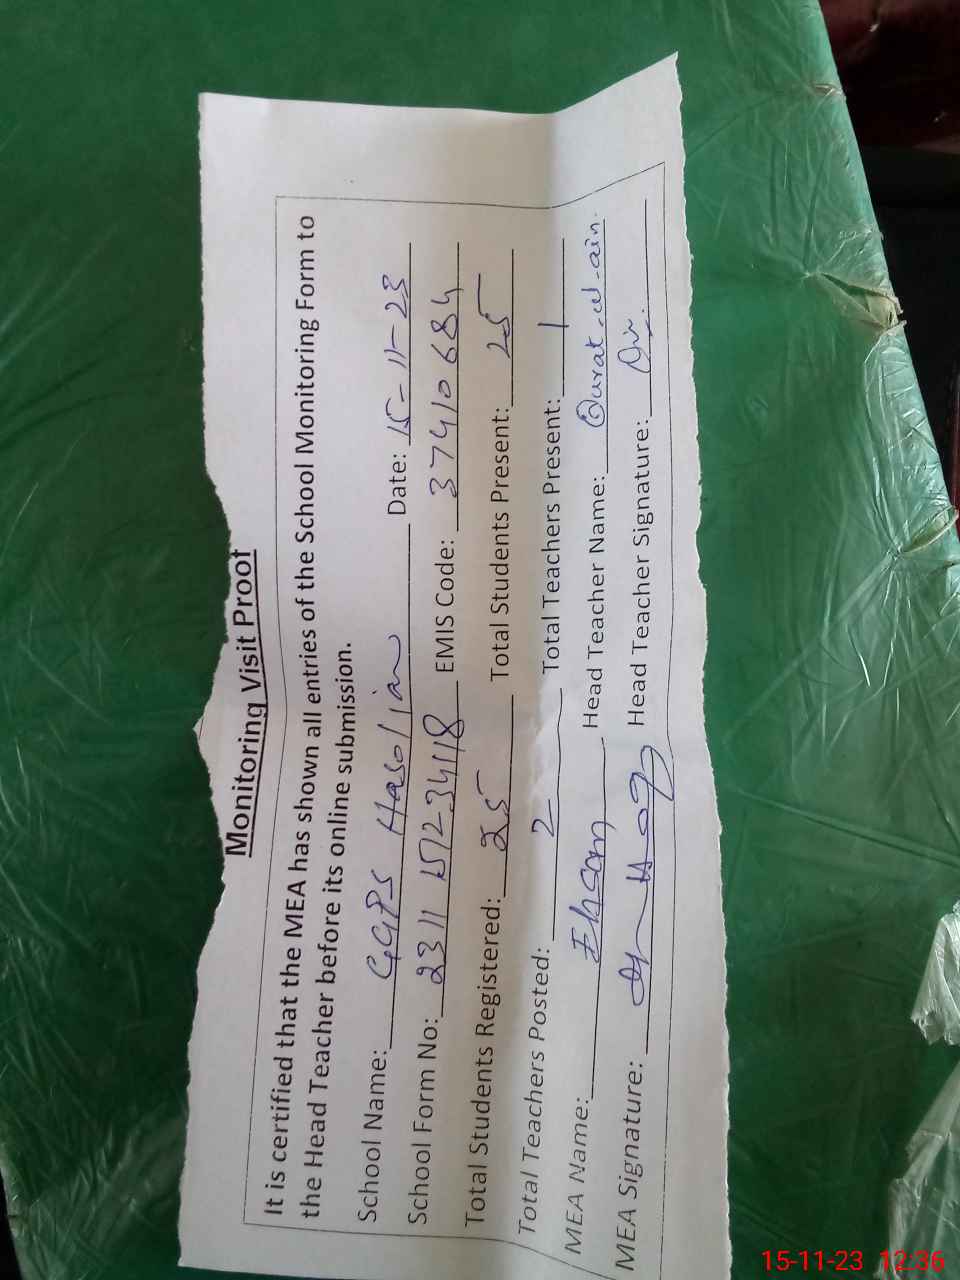 Monitoring Visit Proof
It is certified that the MEA has shown all entries of the School Monitoring Form to
the Head Teacher before its online submission.
School Name: GGPS Hasolian Date: 15-11-23
School Form No: 2311 15/234118 EMIS Code: 37410684
Total Students Registered: 25 Total Students Present: 25
Total Teachers Posted: 2 Total Teachers Present: 1
MEA Name: Ehsan Head Teacher Name: Qurat-ul-ain.
MEA Signature: Head Teacher Signature:
15-11-23 12:36